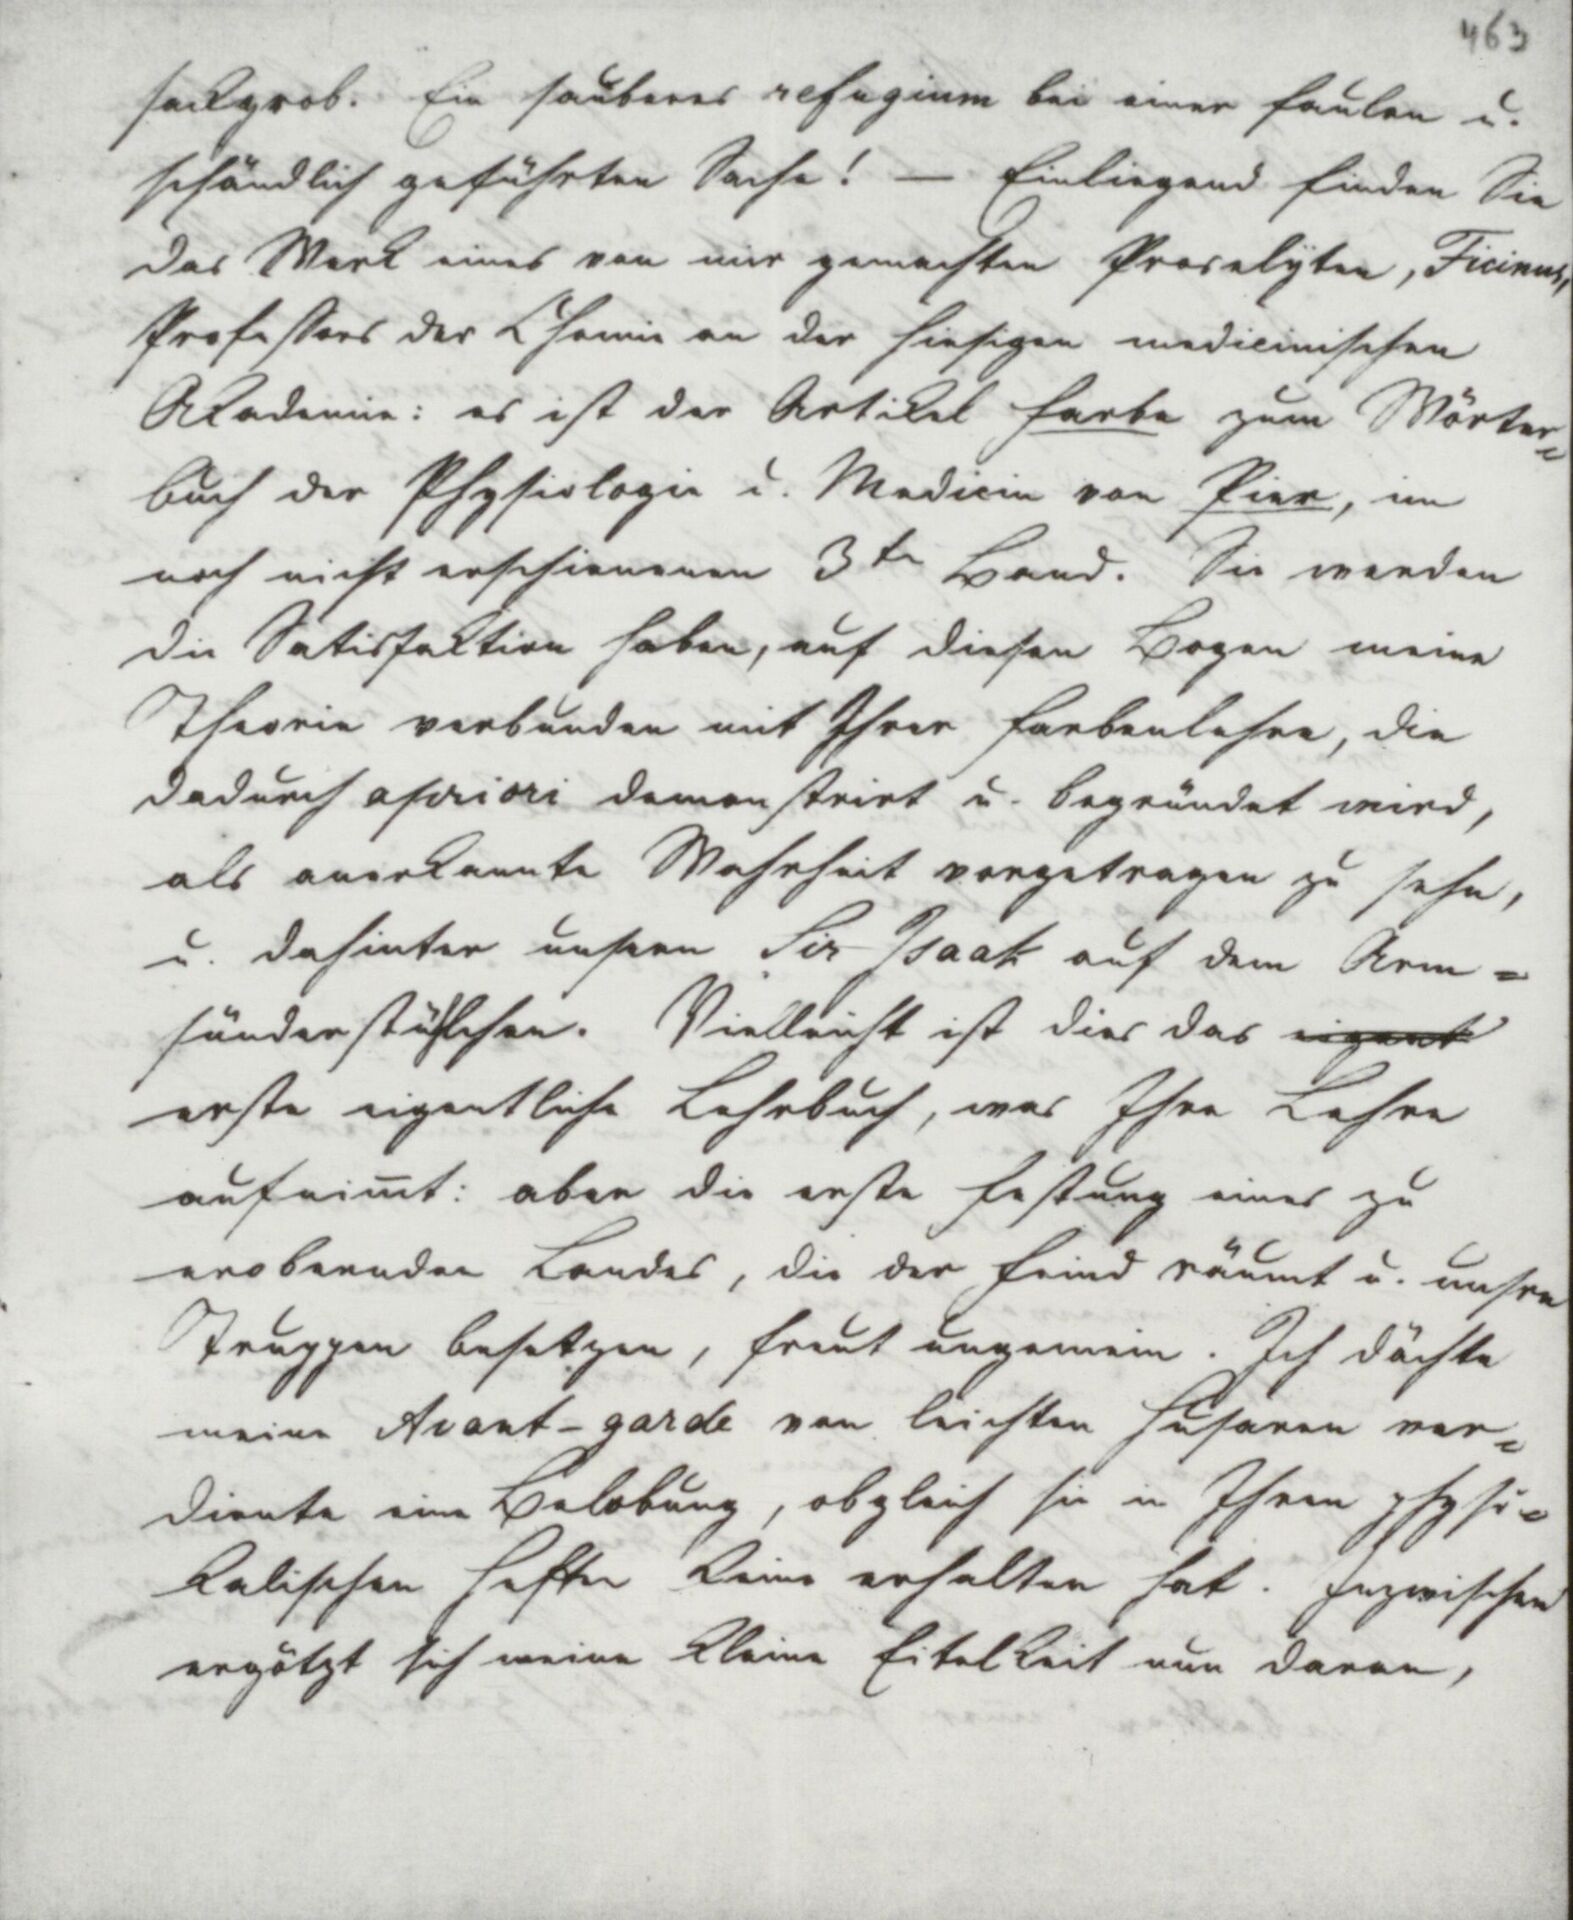 463
sackgrob. Ein sauberes refugium bei einer faulen u.
schändlich geführten Sache! — Einliegend finden Sie
das Werk eines von mir gemachten Proselyten, Ficinus,
Professors der Chemie an der hiesigen medicinischen
Akademie: es ist der Artikel Farbe zum Wörter=
buch der Physiologie u. Medicin von Pier, im
noch nicht erschienenen 3te Band. Sie werden
die Satisfaktion haben, auf diesen Bogen meine
Theorie verbunden mit Ihrer Farbenlehre, die
dadurch apriori demonstrirt u. begründet wird,
als anerkannte Wahrheit vorgetragen zu sehn,
u. dahinter unsern Sir Isaak auf dem Arm=
sünderstühlchen. Vielleicht ist dies das eigent
erste eigentliche Lehrbuch, was Ihre Lehre
aufnim̅t: aber die erste Festung eines zu
erobernden Landes, die der Feind räumt u. unsre
Truppen besetzen, freut ungemein. Ich dächte
meine Avant-garde von leichten Husaren ver=
diente eine Belobung, obgleich sie in Ihren physi=
kalischen Heften keine erhalten hat. Inzwischen
ergötzt sich meine kleine Eitelkeit nun daran,